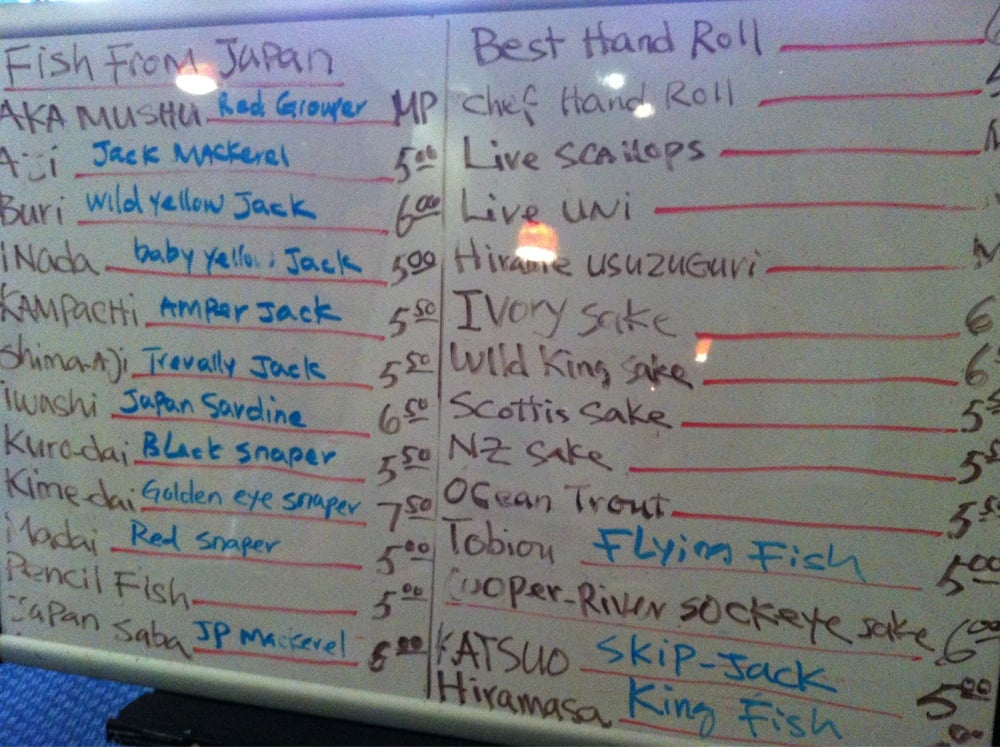 Fish From Japan
AKA MUSHU Red Grouper MP
Aji Jack Mackerel 5.00
Buri Wild Yellow Jack 6.00
iNada baby yellow Jack 5.00
KAMPACHi AMPer Jack 5.50
Shima-Aji Trevally Jack 5.50
iwashi Japan Sardine 6.50
Kuro-dai Black snaper 5.50
Kime-dai Golden eye snaper 7.50
Madai Red snaper 5.00
Pencil Fish 5.00
Japan Saba JP Mackerel 6.00
Best Hand Roll
Chef Hand Roll
Live SCAllOPS
Live UNi
Hirame USUZUGUri
IVory Sake 6
Wild King Sake 6
Scottis Sake 5.5
NZ Sake 5.5
Ocean Trout 5.5
Tobiou Flying Fish 5.00
COOPER-RIVER SOCKEYE Sake 6.00
KATSUO SKiP-Jack 5.00
Hiramasa King Fish